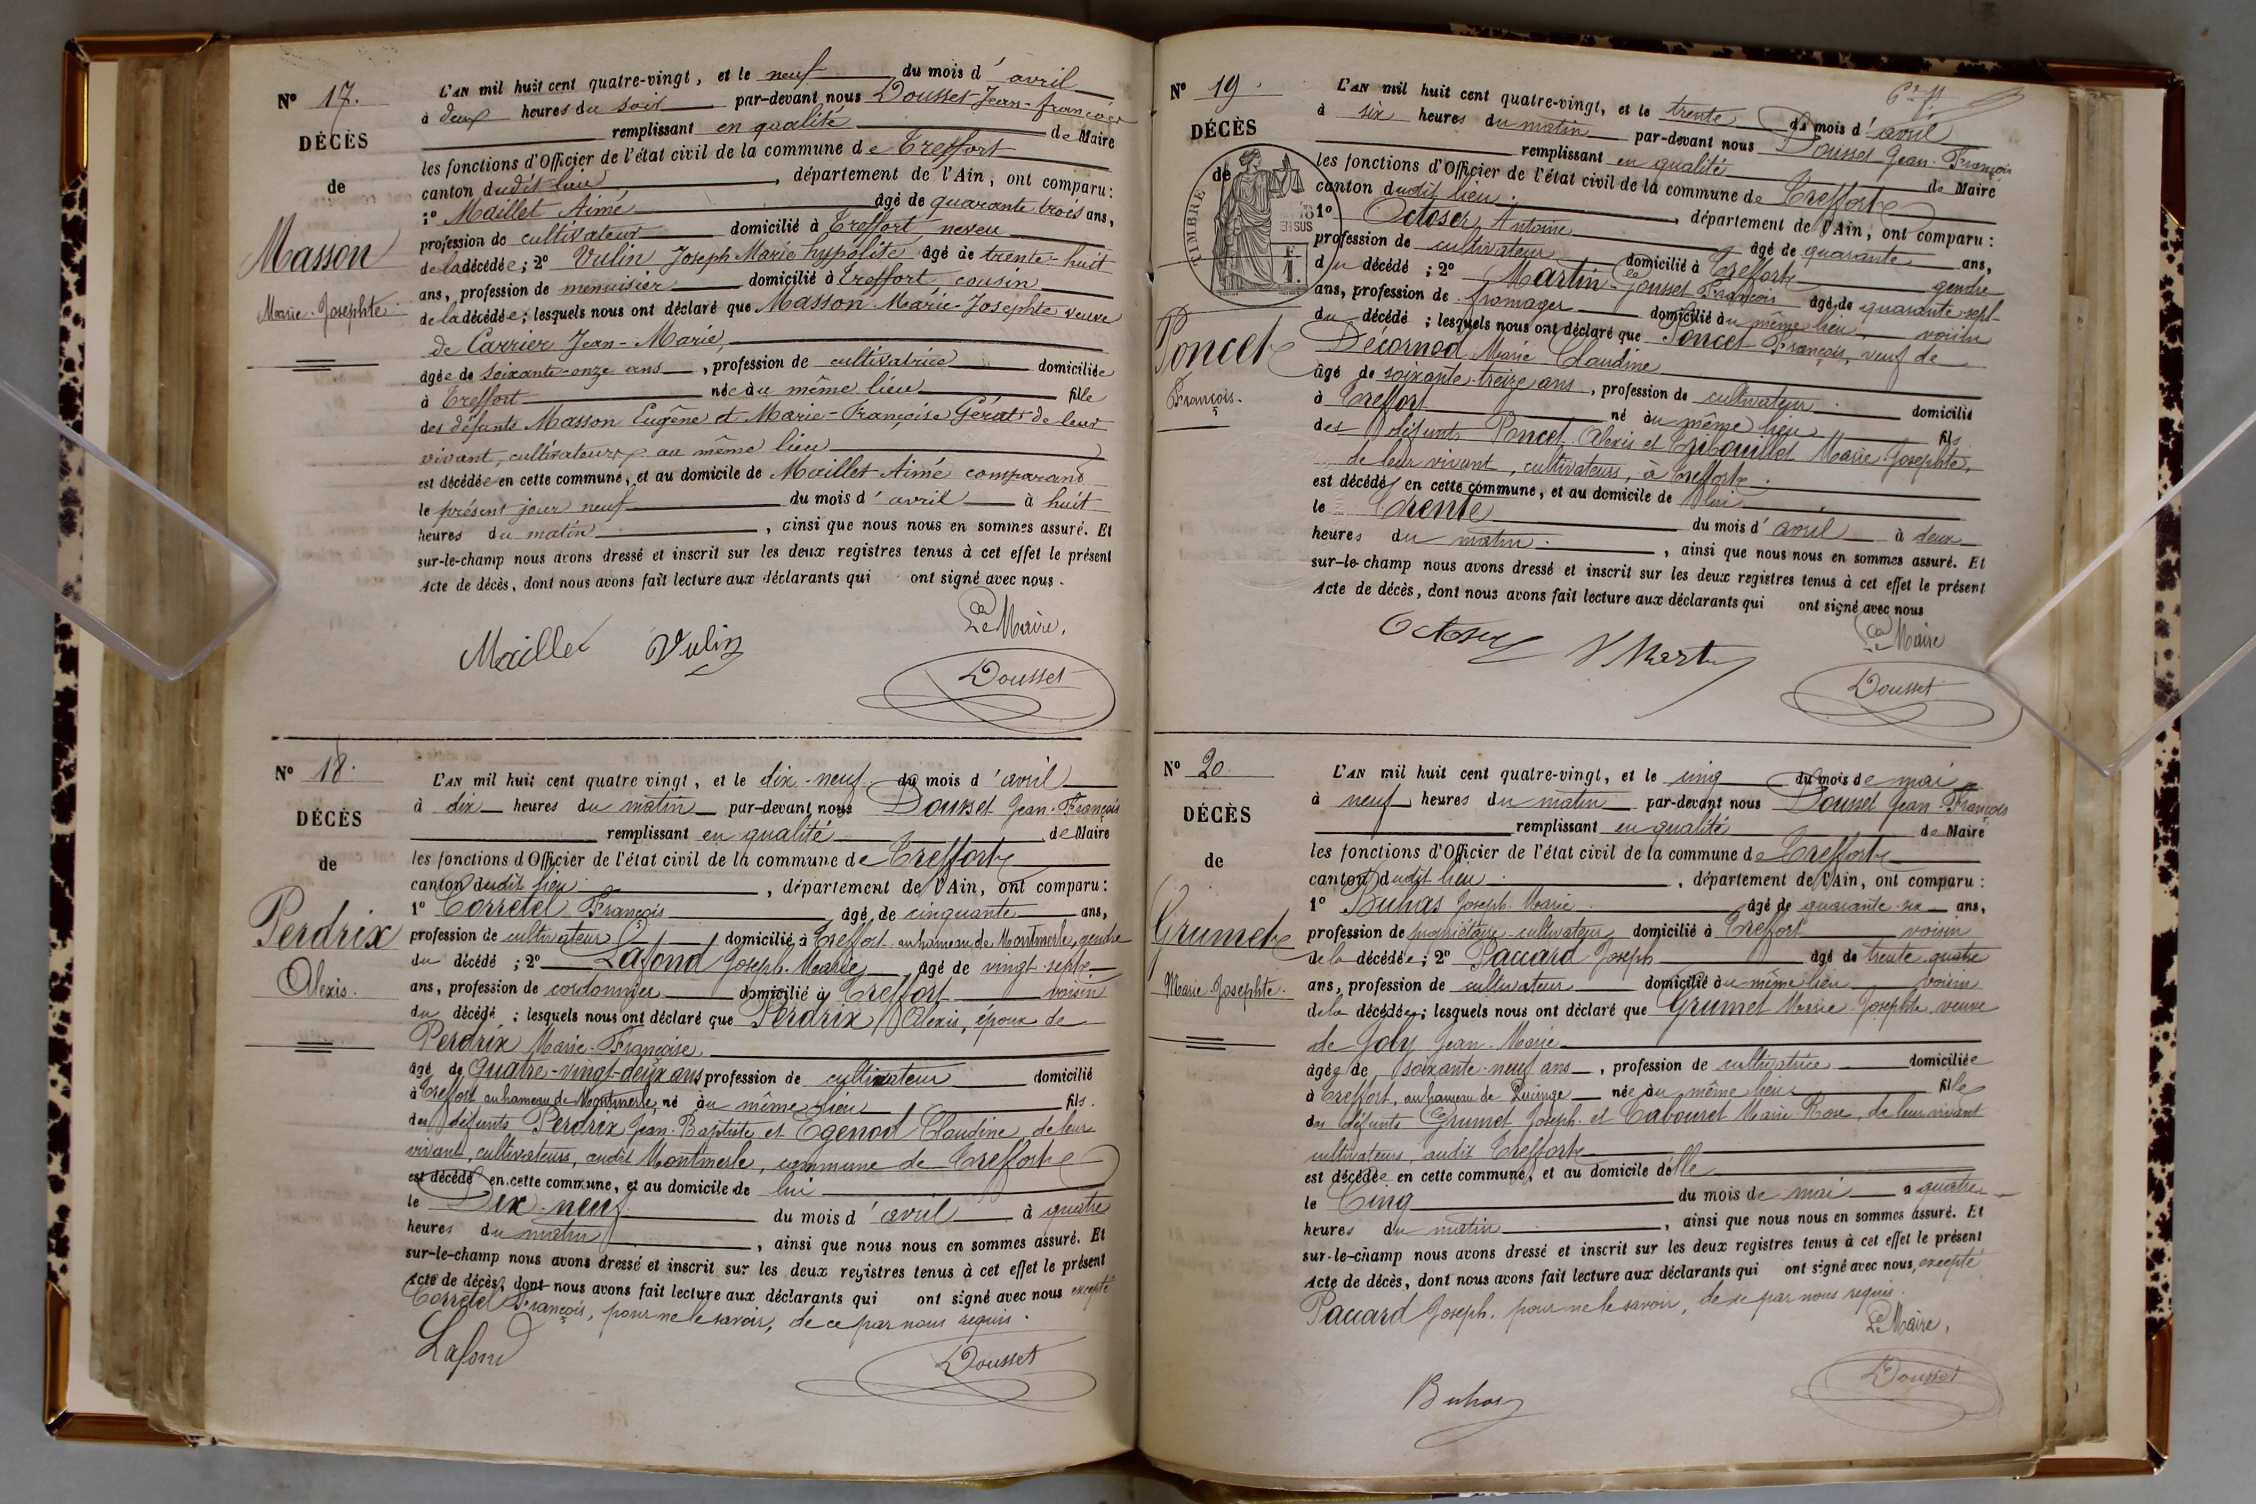 N° 17.
DÉCÈS
de
Masson
Marie-Josephte
L'AN mil huit cent quatre-vingt, et le neuf du mois d'avril
à deux heures du soir par-devant nous Dousset Jean-françois
remplissant en qualité de Maire
les fonctions d'Officier de l'état civil de la commune de Treffort
canton dudit lieu, département de l'Ain, ont comparu:
1° Maillet Aimé âgé de quarante trois ans,
profession de cultivateur domicilié à Treffort, neveu
de la décédée; 2° Vulin Joseph Marie hypolite âgé de trente-huit
ans, profession de menuisier domicilié à Treffort, cousin
de la décédée; lesquels nous ont déclaré que Masson Marie-Josephte veuve
de Carrier Jean-Marie,
âgée de soixante-onze ans, profession de cultivatrice domiciliée
à Treffort née au même lieu fille
des défunts Masson Eugène et Marie-Françoise Gérat de leur
vivant, cultivateurs au même lieu
est décédée en cette commune, et au domicile de Maillet Aimé comparant
le présent jour neuf du mois d'avril à huit
heures du matin, ainsi que nous nous en sommes assuré. Et
sur-le-champ nous avons dressé et inscrit sur les deux registres tenus à cet effet le présent
Acte de décès, dont nous avons fait lecture aux déclarants qui ont signé avec nous.
Le Maire,
Maillet Vulin
Dousset
N° 18.
DÉCÈS
de
Perdrix
Alexis.
L'AN mil huit cent quatre vingt, et le dix-neuf du mois d'avril
à dix heures du matin par-devant nous Dousset Jean-François
remplissant en qualité de Maire
les fonctions d'Officier de l'état civil de la commune de Treffort
canton dudit lieu, département de l'Ain, ont comparu:
1° Corretel François âgé de cinquante ans,
profession de cultivateur domicilié à Treffort au hameau de Montmerle, gendre
du décédé; 2° Lafond Joseph-Marie âgé de vingt-sept
ans, profession de cordonnier domicilié à Treffort voisin
du décédé; lesquels nous ont déclaré que Perdrix Alexis, époux de
Perdrix Marie-Françoise
âgé de Quatre-vingt-deux ans profession de cultivateur domicilié
à Treffort au hameau de Montmerle, né au même lieu fils
des défunts Perdrix Jean-Baptiste et Egenod Claudine, de leur
vivant, cultivateurs, audit Montmerle, commune de Treffort
est décédé en cette commune, et au domicile de lui
le Dix-neuf du mois d'avril à quatre
heures du matin, ainsi que nous nous en sommes assuré. Et
sur-le-champ nous avons dressé et inscrit sur les deux registres tenus à cet effet le présent
Acte de décès, dont nous avons fait lecture aux déclarants qui ont signé avec nous excepté
Corretel François, pour ne le savoir, de ce par nous requis.
Lafond Dousset
N° 19.
DÉCÈS
de
TIMBRE
Poncet
François.
L'AN mil huit cent quatre-vingt, et le trente du mois d'avril
à six heures du matin par-devant nous Dousset Jean-François
remplissant en qualité de Maire
les fonctions d'Officier de l'état civil de la commune de Treffort
canton dudit lieu, département de l'Ain, ont comparu:
1° Octoser Antoine âgé de quarante ans,
profession de cultivateur domicilié à Treffort gendre
du décédé; 2° Martin-Jousset François âgé de quarante-sept
ans, profession de fromager domicilié au même lieu, voisin
du décédé; lesquels nous ont déclaré que Poncet François, veuf de
Décornod Marie Claudine
âgé de soixante-treize ans, profession de cultivateur domicilié
à Treffort né au même lieu fils
des défunts Poncet Alexis et Tribouillet Marie Josephte,
de leur vivant, cultivateurs, à Treffort
est décédé en cette commune, et au domicile de lui
le Trente du mois d'avril à deux
heures du matin, ainsi que nous nous en sommes assuré. Et
sur-le-champ nous avons dressé et inscrit sur les deux registres tenus à cet effet le présent
Acte de décès, dont nous avons fait lecture aux déclarants qui ont signé avec nous
Le Maire
Octoser Martin
Dousset
N° 20.
DÉCÈS
de
Grumet
Marie Josephte.
L'AN mil huit cent quatre-vingt, et le cinq du mois de mai
à neuf heures du matin par-devant nous Dousset Jean-François
remplissant en qualité de Maire
les fonctions d'Officier de l'état civil de la commune de Treffort
canton dudit lieu, département de l'Ain, ont comparu:
1° Buhas Joseph-Marie âgé de quarante-six ans,
profession de propriétaire-cultivateur domicilié à Treffort voisin
de la décédée; 2° Paccard Joseph âgé de trente-quatre
ans, profession de cultivateur domicilié au même lieu voisin
de la décédée; lesquels nous ont déclaré que Grumet Marie-Josephte veuve
de Joly Jean-Marie
âgée de soixante-neuf ans, profession de cultivatrice domiciliée
à Treffort, au hameau de née au même lieu fille
des défunts Grumet Joseph et Tabouret Marie-Rose, de leur vivant
cultivateurs, audit Treffort
est décédée en cette commune, et au domicile d'elle
le Cinq du mois de mai à quatre
heures du matin, ainsi que nous nous en sommes assuré. Et
sur-le-champ nous avons dressé et inscrit sur les deux registres tenus à cet effet le présent
Acte de décès, dont nous avons fait lecture aux déclarants qui ont signé avec nous, excepté
Paccard Joseph, pour ne le savoir, de ce par nous requis.
Le Maire,
Dousset
Buhas